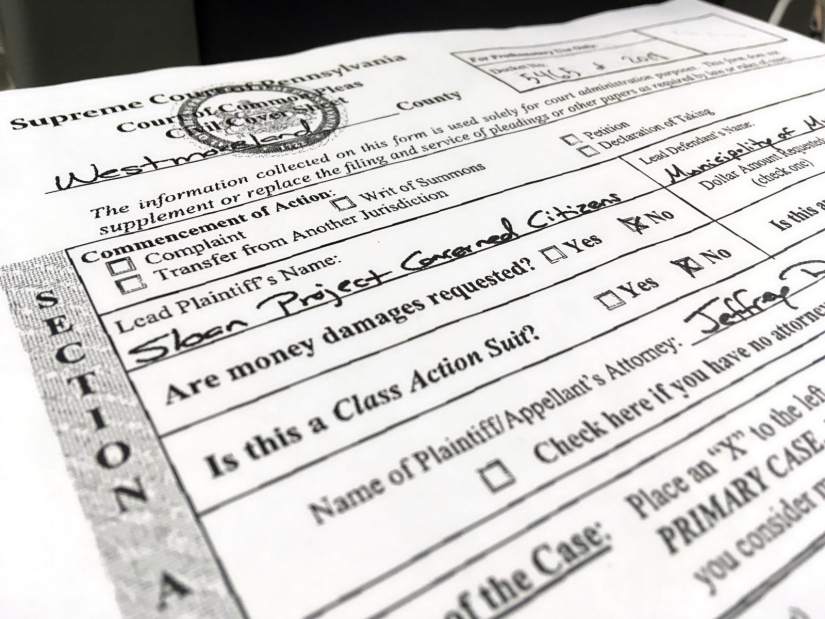 Supreme Court of Pennsylvania
Court of Common Pleas
Civil Cover Sheet
Westmoreland County
For Prothonotary Use Only:
Docket No:
5465 of 2018
The information collected on this form is used solely for court administration purposes. This form does not
supplement or replace the filing and service of pleadings or other papers as required by law or rules of court.
Commencement of Action:
Complaint
Writ of Summons
Petition
Transfer from Another Jurisdiction
Declaration of Taking
Lead Plaintiff's Name:
Sloan Project Concerned Citizens
Lead Defendant's Name:
Municipality of
Are money damages requested? Yes No
Dollar Amount Requested
(check one)
Is this a Class Action Suit? Yes No
Is this
Name of Plaintiff/Appellant's Attorney: Jeffrey D
Check here if you have no attorney
of the Case:
Place an "X" to the left
PRIMARY CASE.
you consider
SECTION A